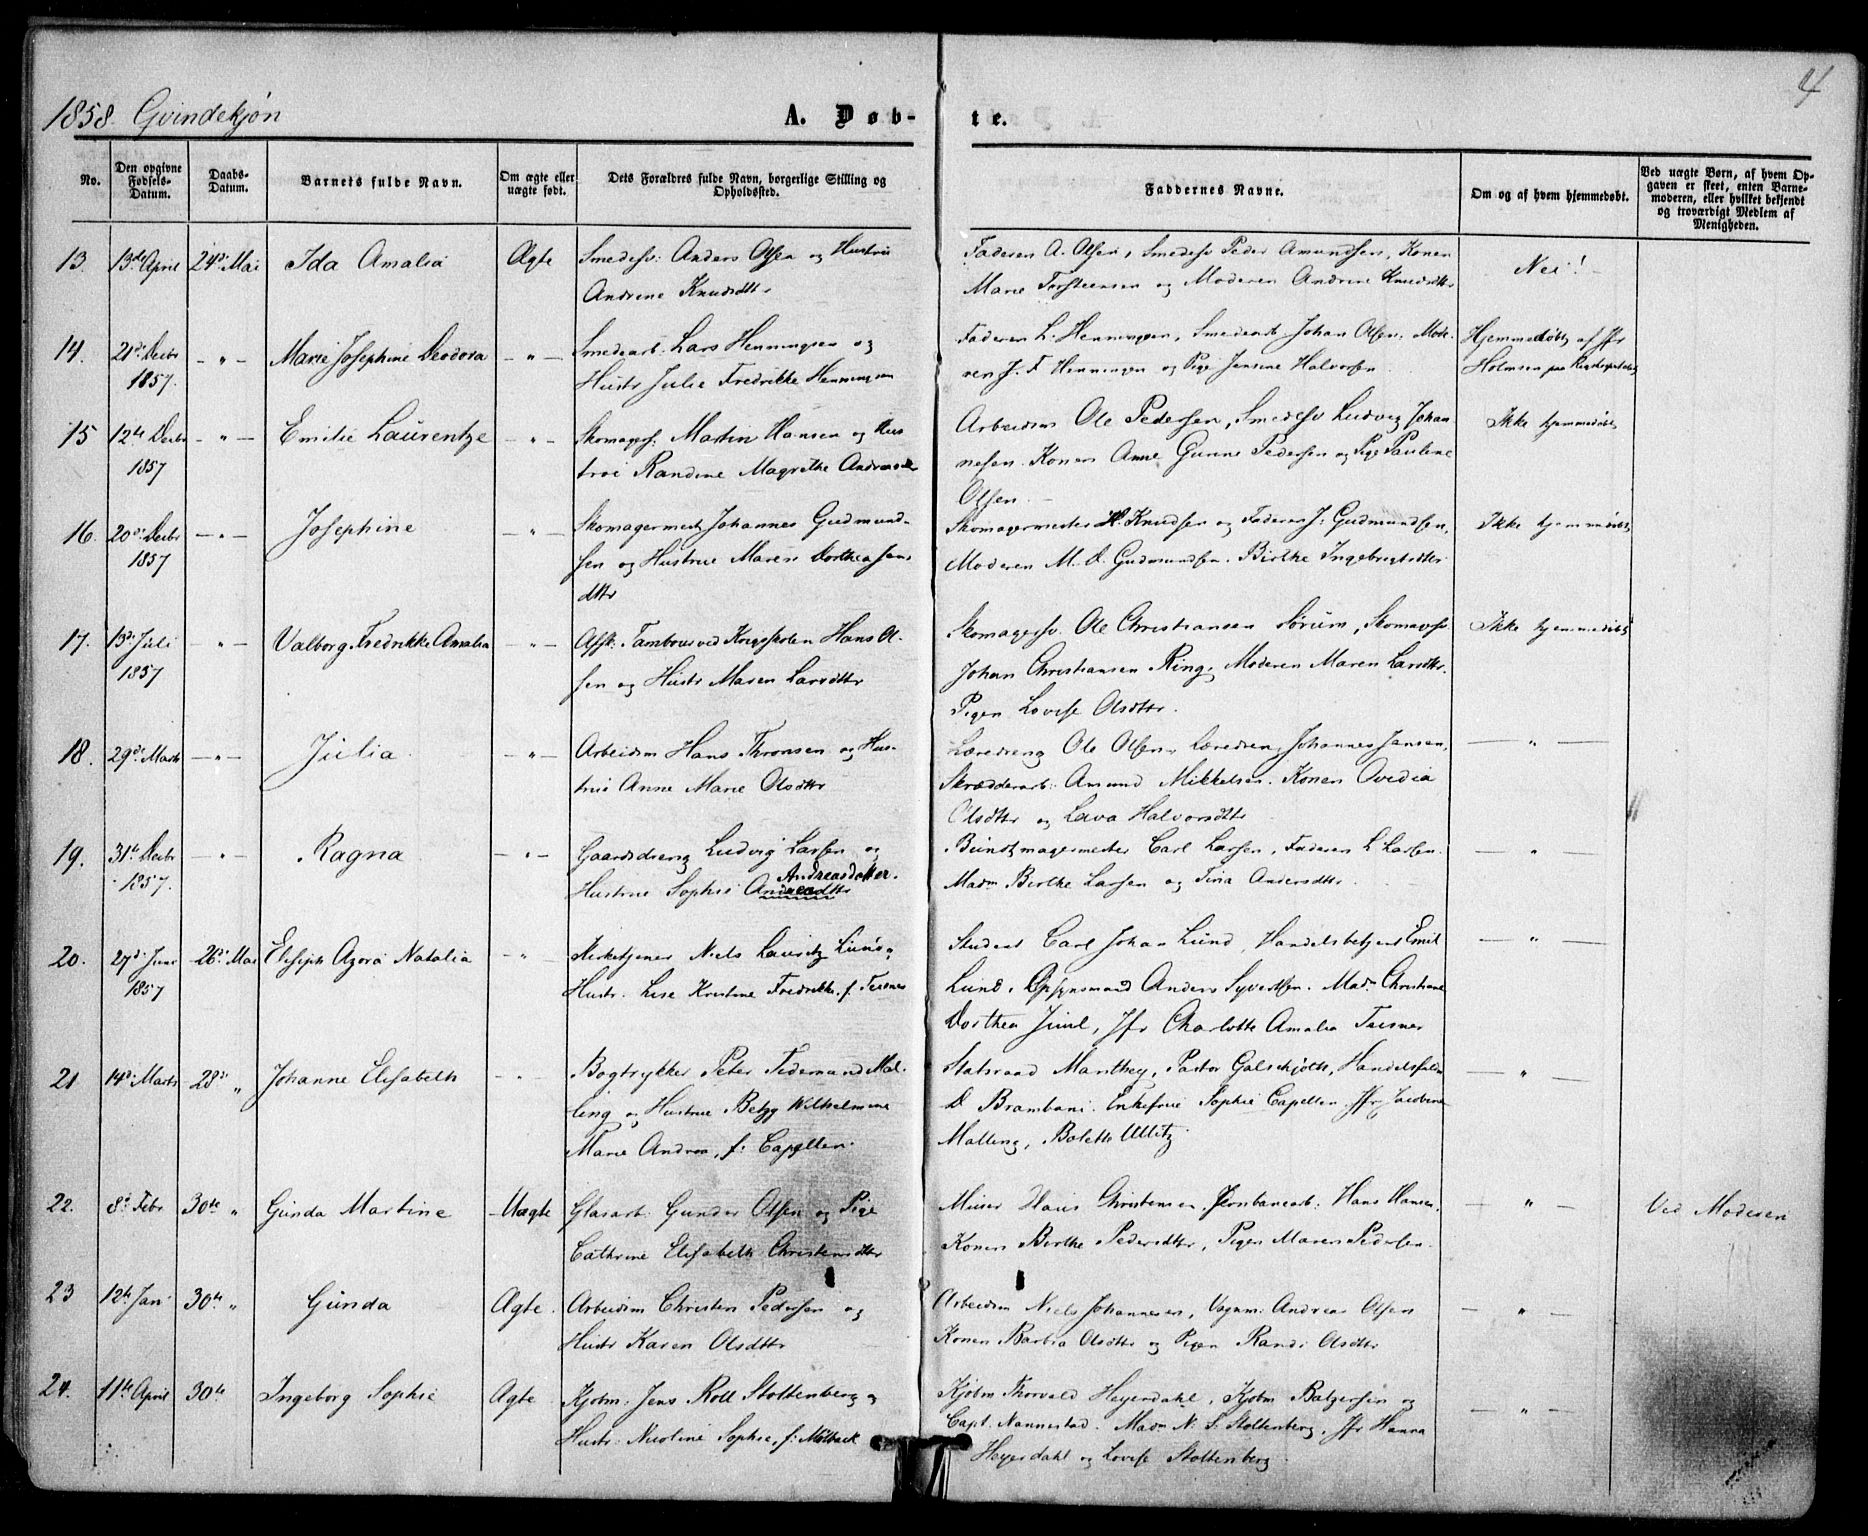 4
1858. Qvindekjøn
A. Døb-
te.
No.
Den opgivne Fødsels-Datum.
Daabs-Datum.
Barnets fulde Navn.
Om ægte eller uægte født.
Dets Forældres fulde Navn, borgerlige Stilling og Opholdssted.
Faddernes Navne.
Om og af hvem hjemmedøbt.
Ved uægte Børn, af hvem Op-
gaven er skeet, enten Barne-
moderen, eller hvilket bekjendt
og troværdigt Medlem af
Menigheden.
13. 13de April 24de Mai Ida Amalia Ægte Smedesv: Anders Olsen og Hustrue
Andrine Knudsdttr
Faderen A. Olsen, Smedesv Peder Amundsen, Konen
Marie Torsteensen og Moderen Andrine Knudsdttr
Nei!
14. 21de Decbr 1857. — " — Marie Josephine Deodora — " — Smedearb: Lars Henningsen og
Hustr Julie Fredrikke Henningsen
Faderen L. Henningsen, Smedearb Johan Olsen. Mode-
ren J. F Henningsen og Pige Jensine Halvorsen
Hjemmedøbt af Jfr
Holmsen paa
15 12te Decbr 1857 — " — Emilie Laurentze — " — Skomagersv. Martin Hansen og Hus
true Randine Magrethe Andreasdttr
Arbeidsm Ole Pedersen, Smedesv Ludvig Johan
nesen. Konen Anne Gurine Pedersen og Pige Pauline
Olsen.
Ikke hjemmedøbt
16. 20de Decbr 1857 — " — Josephine — " — Skomagermestr Johannes Gudmund-
sen og Hustrue Maren Dorthea Jens
dttr
Skomagermester H. Knudsen og Faderen J. Gudmundsen,
Moderen M. D. Gudmundsen. Birthe Ingebregtsdttr
Ikke hjemmedøbt
17. 13de Juli 1857 — " — Valborg Fredrikke Amalia — " — Afsk. Tambour ved Krigsskolen Hans Ol-
sen og Hustr Maren Larsdttr
Skomagersv. Ole Christiansen Sørum, Skomagersv
Johan Christiansen Ring, Moderen Maren Larsdttr.
Pigen Lovise Olsdttr.
Ikke hjemmedøbt
18. 29de Marts — " — Julia — " — Arbeidsm Hans Thronsen og Hus-
true Anne Marie Olsdttr
Læredreng Ole Olsen, Læredreng Johannes Jansen,
Skrædderarb: Amund Mikkelsen. Konen Ovedia
Olsdttr og Lava Halvorsdttr
— " —
19. 31te Decbr 1857. — " — Ragna — " — Gaardsdreng Ludvig Larsen og
Andreasdatter.
Hustrue Sophie Andreadttr
Bundtmagermester Carl Larsen, Faderen L Larsen.
Madm Birthe Larsen og Tina Andersdttr
— " —
20. 27de Juni 1857 26de Mai Eliseph Azora Natalia — " — Kirketjener Niels Lauritz Lund &
Hustr. Lise Kristine Fredrikke f. Teisner
Student Carl Johan Lund, Handelsbetjent Emil
Lund, Opsynsmand Anders Syvertsen. Madm Christiane
Dorthea Juul, Jfr Charlotte Amalia Teisner
— " —
21 14de Marts 28de " Johanne Elisabeth — " — Bogtrykker Peter Tidemand Mal-
ling og Hustrue Betzy Wilhelmine
Marie Andrea, f: Capellen.
Statsraad Manthey, Pastor Galschjøtt, Handelsfuldm
D Brambani. Enkefrue Sophie Capellen. Jfr Jacobine
Malling, Bolette Ullitz.
— " —
22. 8de Febr 30te " Gunda Martine Uægte Glasarb: Gunder Olsen og Pige
Cathrine Elisabeth Christensdttr
Murer Hans Christensen, Jernbanearb. Hans Hansen.
Konen Birthe Pedersdttr, Pigen Maren Pedersen.
— " —
Ved Moderen
23 12te Jan 30te " Gunda Ægte. Arbeidsm Christen Pedersen og
Hustr Karen Olsdttr
Arbeidsm Niels Johannesen, Vognm. Andreas Olsen
Konen Barbra Olsdttr og Pigen Randi Olsdttr
— " —
24. 11te April 30te Ingeborg Sophie Ægte Kjøbm: Jens Roll Stoltenberg &
Hustr: Nicoline Sophie, f: Mølbach
Kjøbm Thorvald Heyerdahl, Kjøbm Balzersen og
Capt. Nannestad. Madm N. S. Stoltenberg, Jfr Hanna
Heyerdahl og Lovise Stoltenberg.
— " —